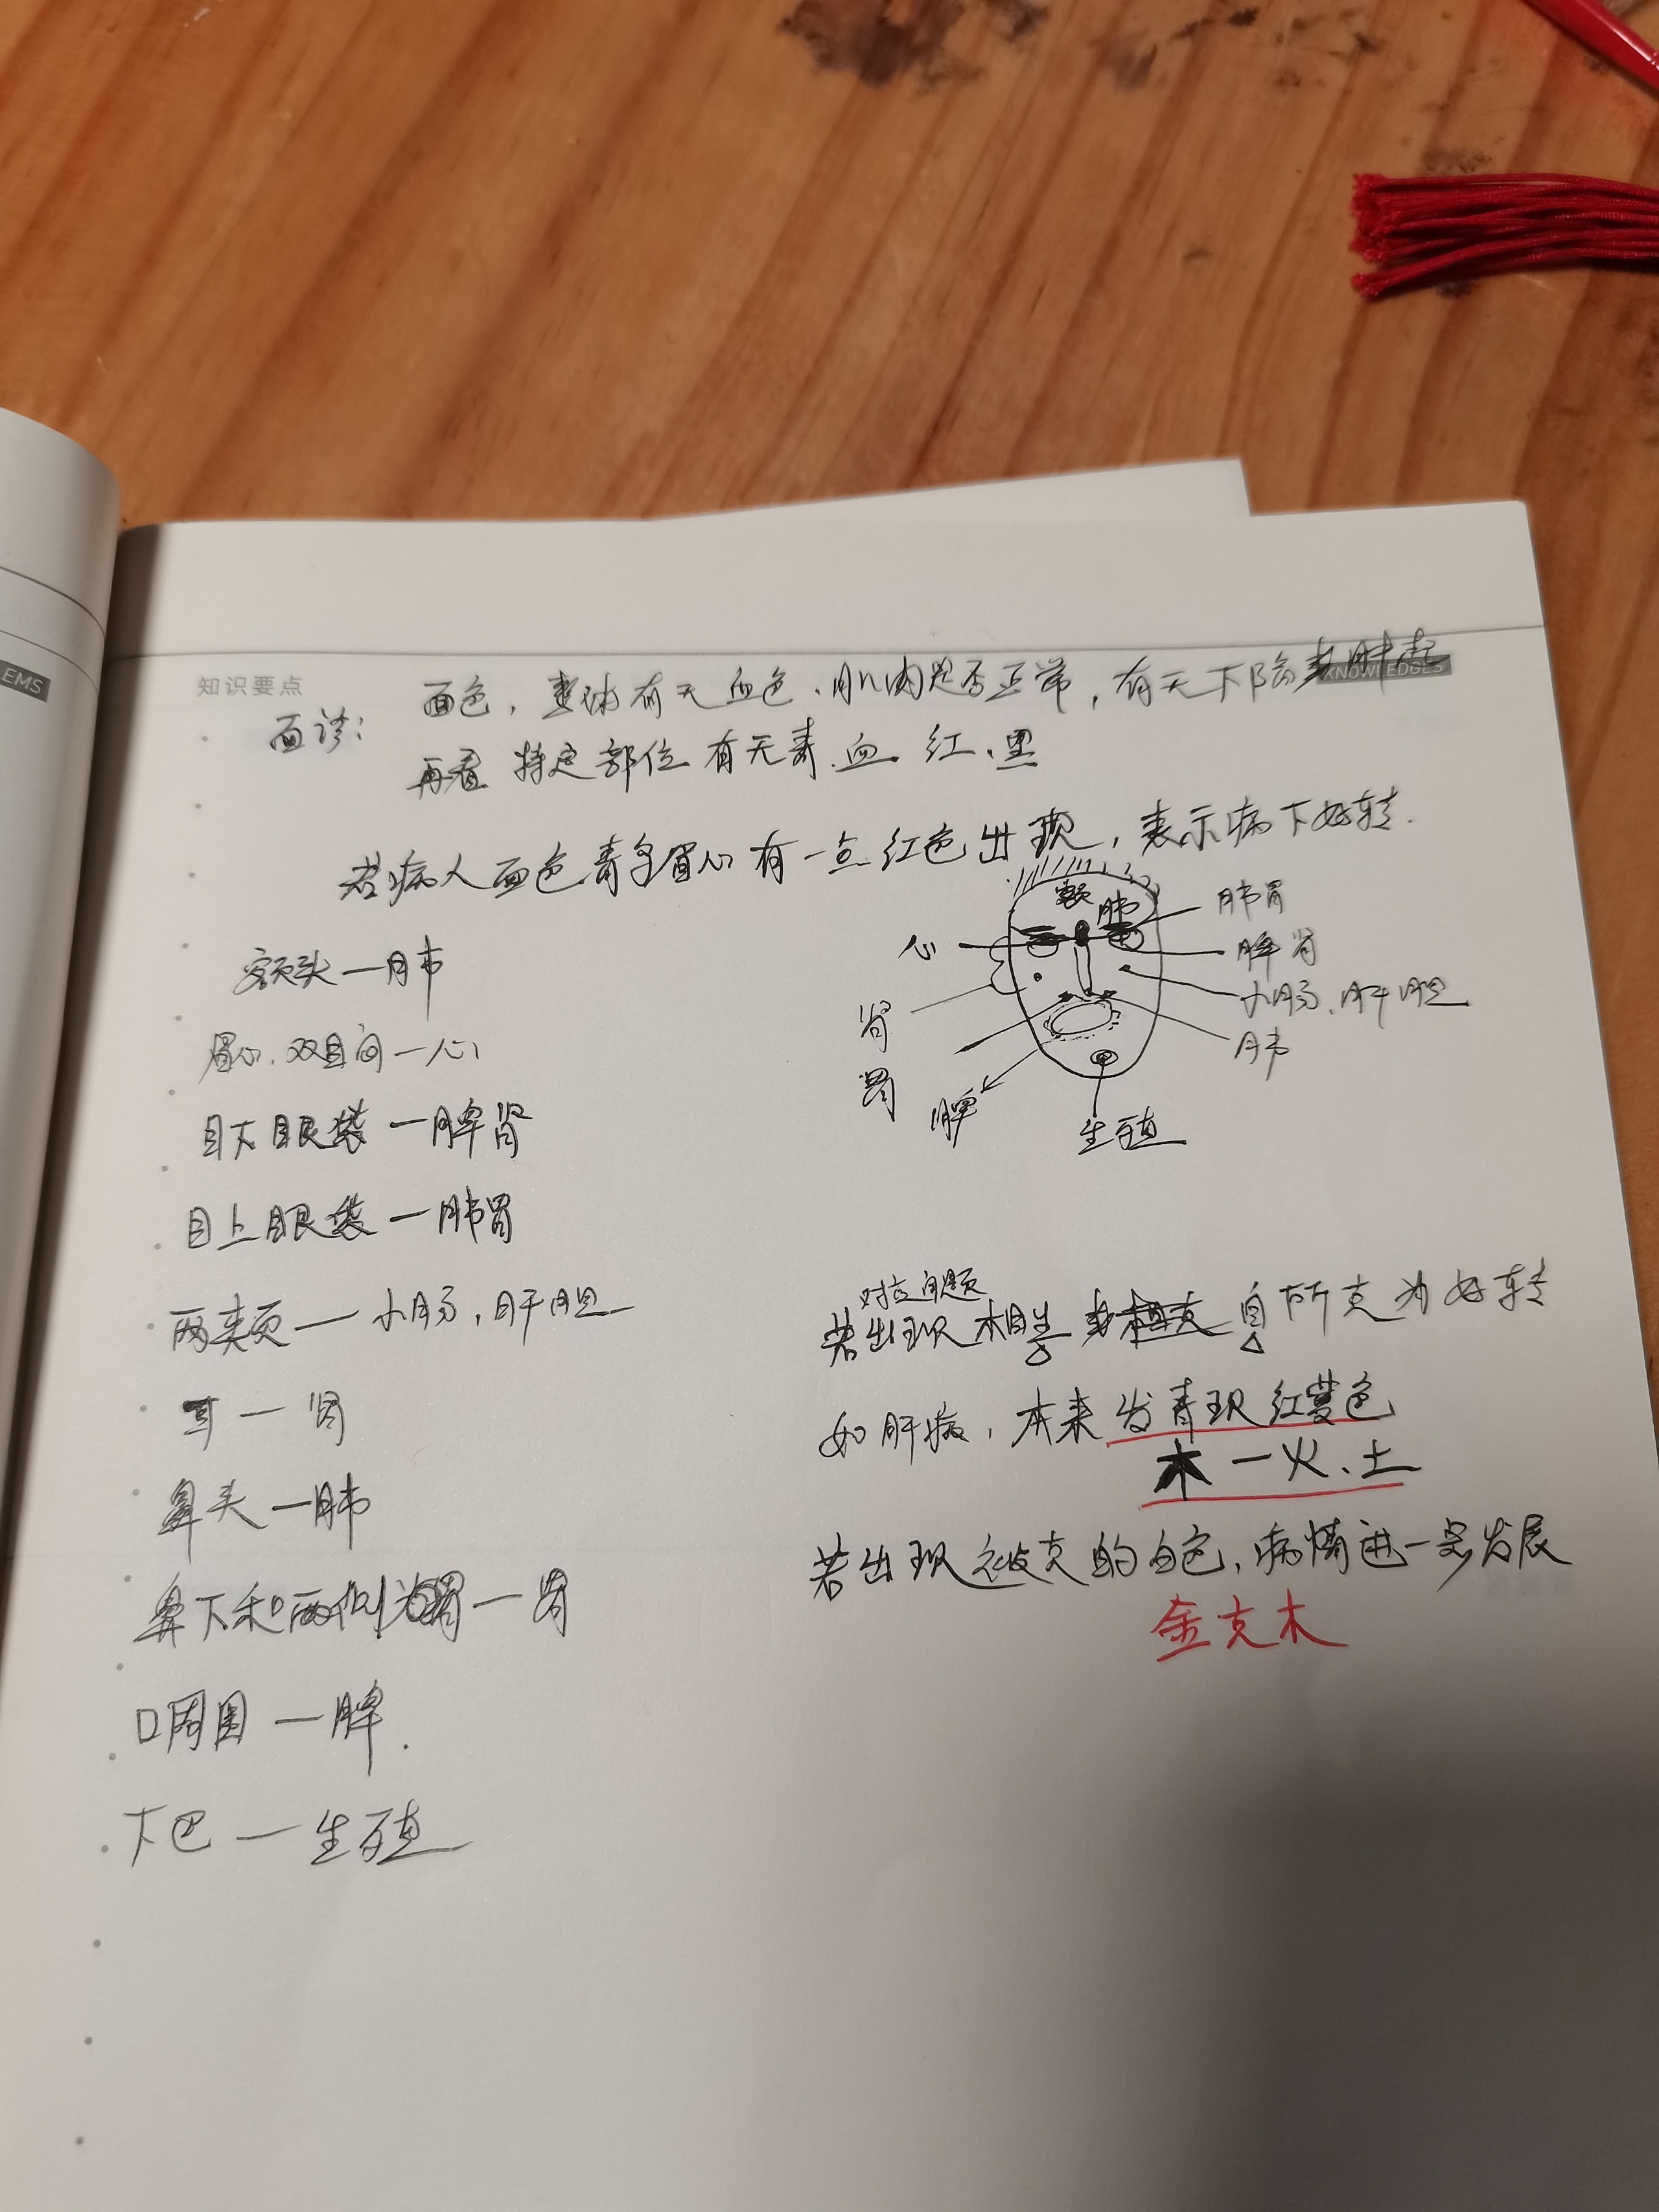 EMS
知识要点
KNOWLEDGES
面诊：
面色，整体有无血色、肌肉是否正常，有无下陷或肿起
再看 特定部位 有无青、血、红、黑
若病人面色青 眉心有一点红色出现，表示病下好转.
额头—肺
眉心、双目间—心
目下眼袋—脾肾
目上眼袋—肺胃
两夹页—小肠，肝胆
耳—肾
鼻头—肺
鼻下和两侧为胃—胃
口周围—脾.
下巴—生殖
额
肺
肺胃
脾肾
小肠、肝胆
肺
心
肾
胃
脾
生殖
对应问题
若出现相生 自所克为好转
如肝病，本来发青现红黄色
木—火、土
若出现被克的白色，病情进一步发展
金克木